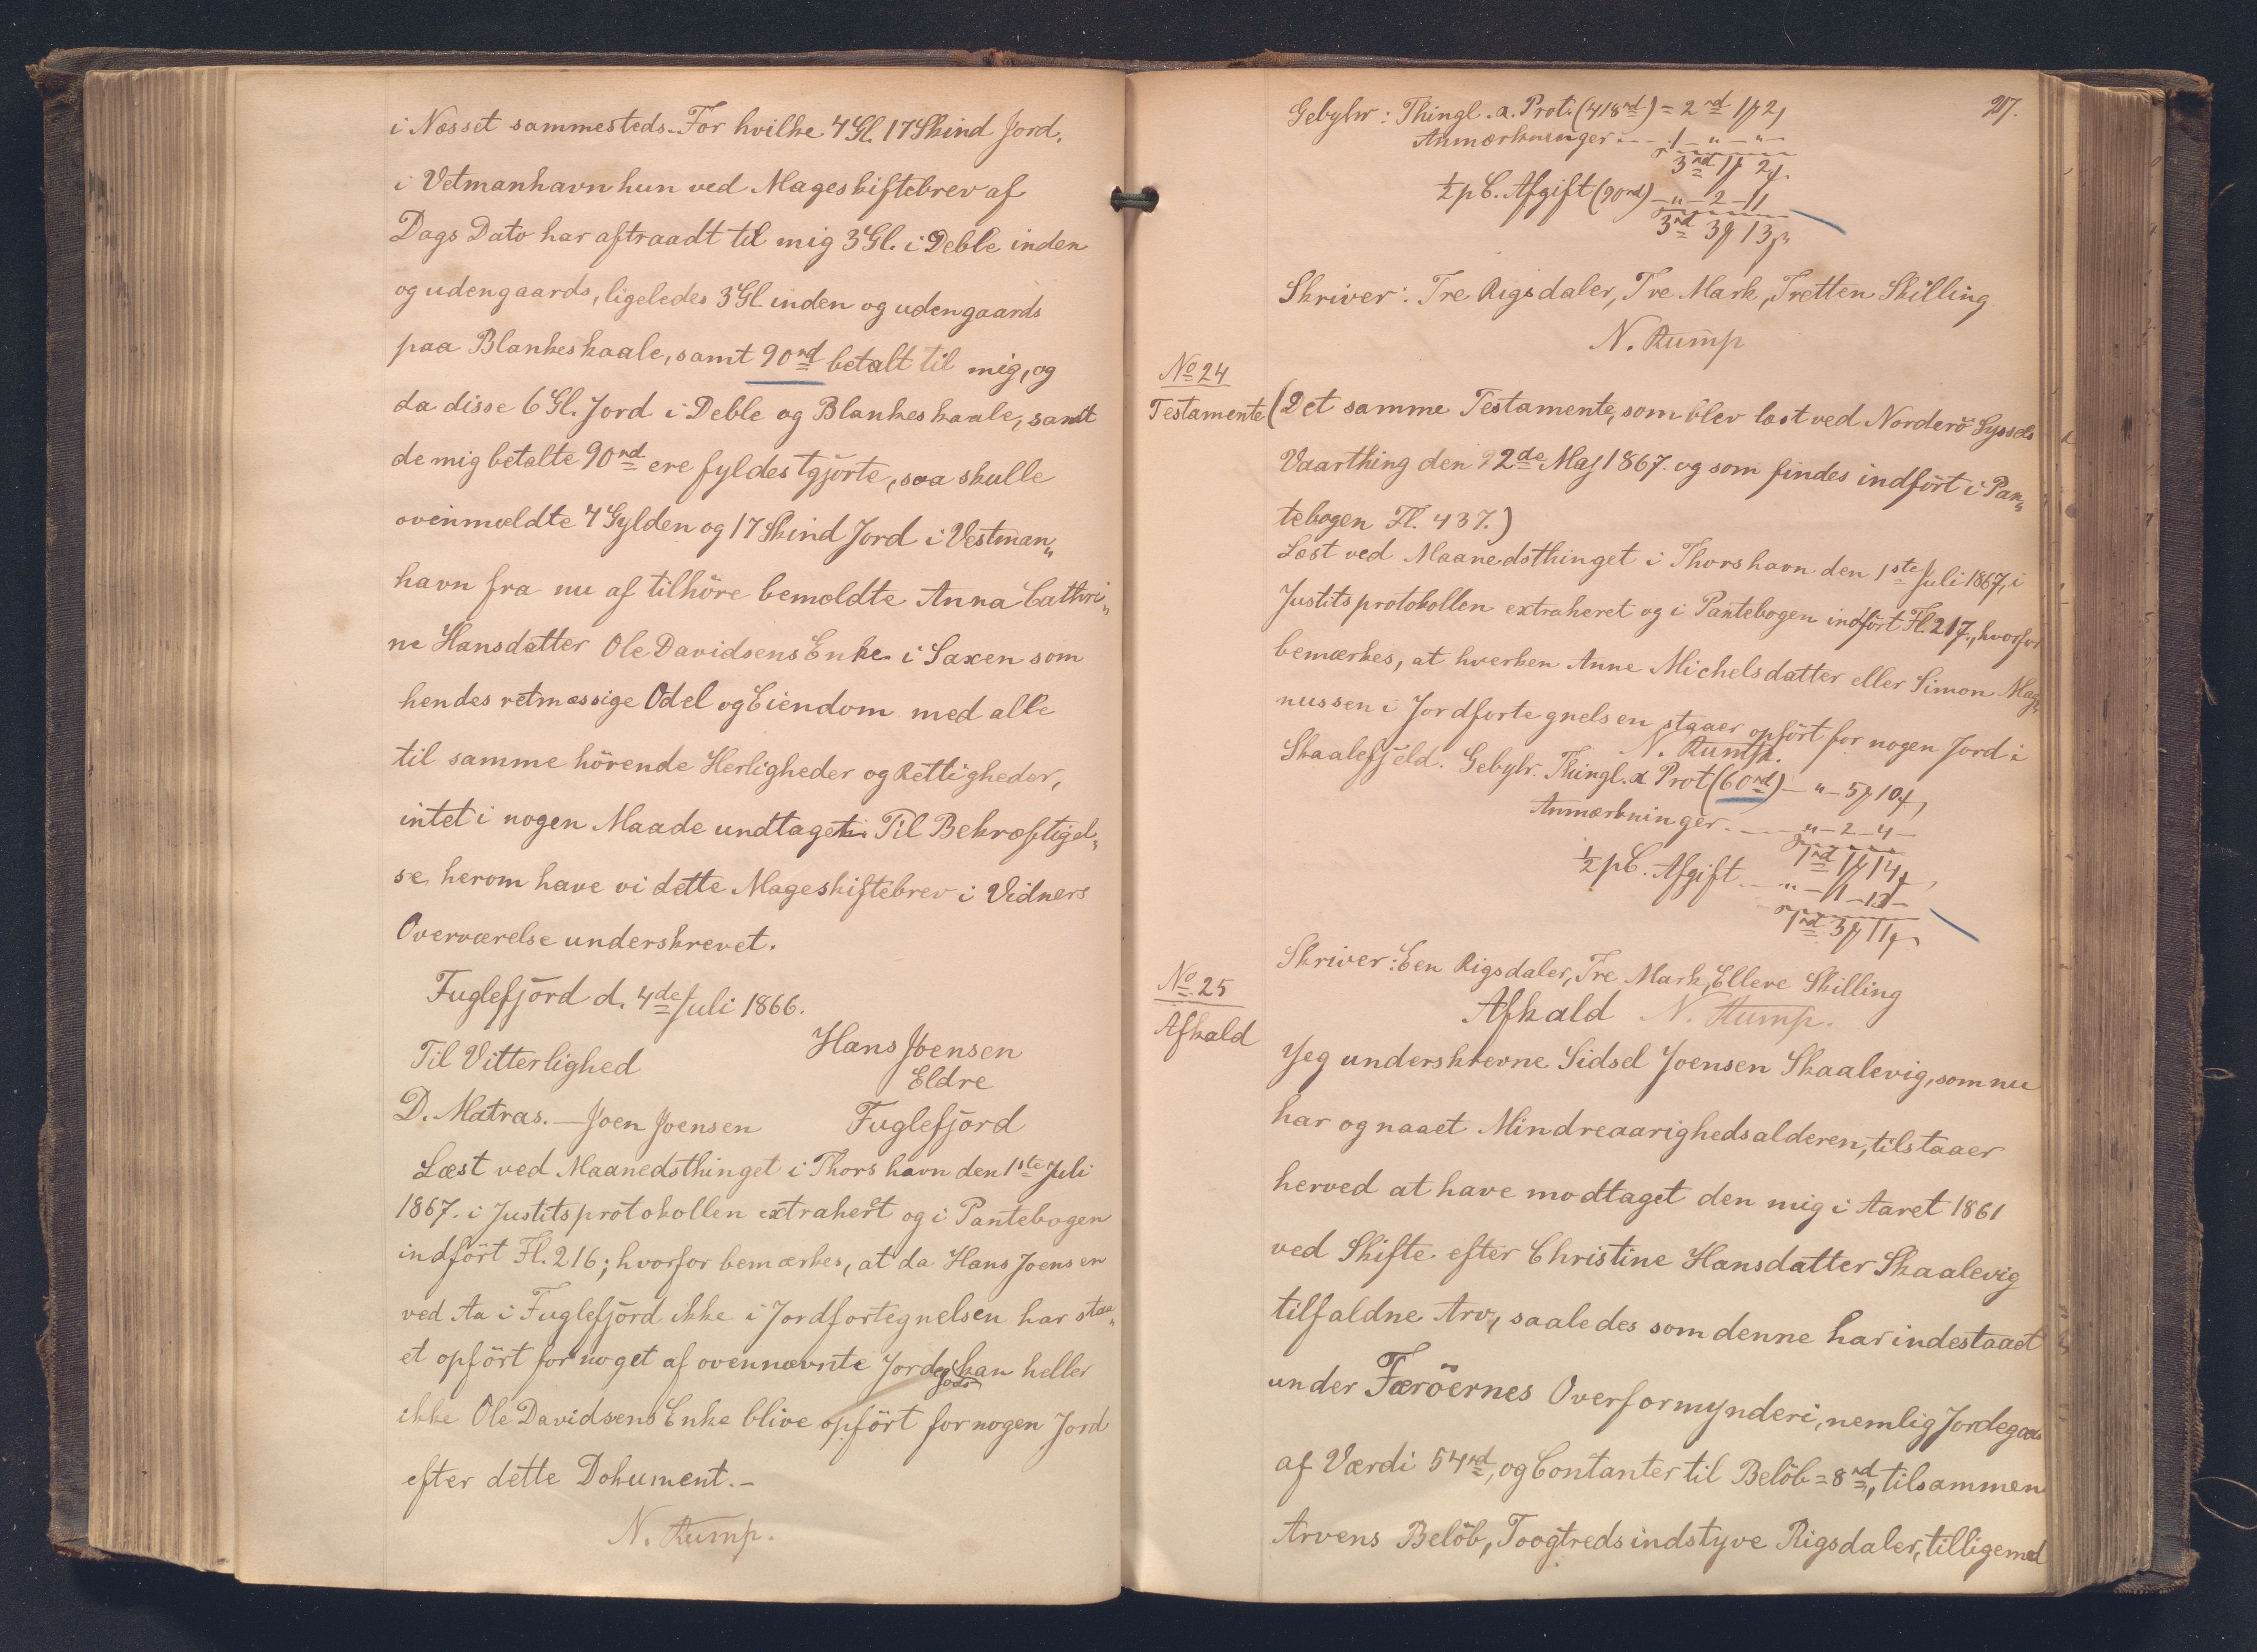 i Næsset sammesteds. For hvilke 4 Gl. 17 Skind Jord,
i Vetmanhavn hun ved Mageskiftebrev af
Dags Dato har aftraadt til mig 3 Gl. i Deble inden
og udengaards, ligeledes 3 Gl inden og udengaards
paa Blankeskaale, samt 90 rd betalt til mig, og
da disse 6 Gl. Jord i Deble og Blankeskaale, samt
de mig betalte 90 rd ere fyldestgjorte, saa skulle
ovenmældte 4 Gylden og 17 Skind Jord i Vestman„
havn fra nu af tilhöre bemeldte Anna Cathri„
ne Hansdatter Ole Davidsens Enke i Saxen som
hendes retmæssige Odel og Eiendom med alle
til samme hörende Herligheder og Rettigheder,
intet i nogen Maade undtaget. Til Bekræftigel„
se herom have vi dette Mageskiftebrev i Vidners
Overværelse underskrevet.
Fuglefjörd d. 4de Juli 1866.
Til Vitterlighed
Hans Joensen
Eldre
D. Matras. — Joen Joensen
Fuglefjörd
Læst ved Maanedsthinget i Thorshavn den 1ste Juli
1867. i Justitsprotokollen extrahert og i Pantebogen
indfört Fl. 216; hvorfor bemærkes, at da Hans Joensen
ved Aa i Fuglefjörd ikke i Jordfortegnelsen har staa„
et opfört for noget af ovennævnte Jorder kan heller
ikke Ole Davidsens Enke blive opfört for nogen Jord
efter dette Dokument. –
N. Rump.
217.
Gebyhr: Thingl. a. Prot. (418 rd) = 2 rd 1 ₰ 2
Anmærkninger — 1 — „ — „ —
3 rd 1 2
½ pC. Afgift (90 rd) — „ — 2 — 11
3 rd 3 13
Skriver: Tre Rigsdaler, Tre Mark, Tretten Skilling
N. Rump
No 24
Testamente
(Det samme Testamente, som blev læst ved Norderö Syssels
Vaarthing den 22de Maj 1867. og som findes indfört i Pan„
tebogen Fl. 437.)
Læst ved Maanedsthinget i Thorshavn den 1ste Juli 1867, i
Justitsprotokollen extraheret og i Pantebogen indfört Fl. 217., hvorfor
bemærkes, at hverken Anne Michelsdatter eller Simon Mag„
nussen i Jordfortegnelsen staaer opfört for nogen Jord i
N. Rump.
Skaalefjeld. Gebyhr. Thingl. a Prot (60 rd) — „ — 5 10
Anmærkninger. — „ — 2 — 4 —
1 rd 1 14
½ pC. Afgift — „ — 1 — 13 —
1 rd 3 11
Skriver: Een Rigsdaler, Tre Mark, Elleve Skilling
N. Rump.
No 25
Afkald
Afkald
Jeg underskrevne Sidsel Joensen Skaalevig, som nu
har ognaaet Mindreaarighedsalderen, tilstaaer
herved at have modtaget den mig i Aaret 1861
ved Skifte efter Christine Hansdatter Skaalevig
tilfaldne Arv, saaledes som denne har indestaaet
under Færöernes Overformynderi, nemlig Jordegods
af Værdi 54 rd, og Contanter til Belöb = 8 rd, tilsammen
Arvens Belöb, Toogtredsindstyve Rigsdaler, tilligemed